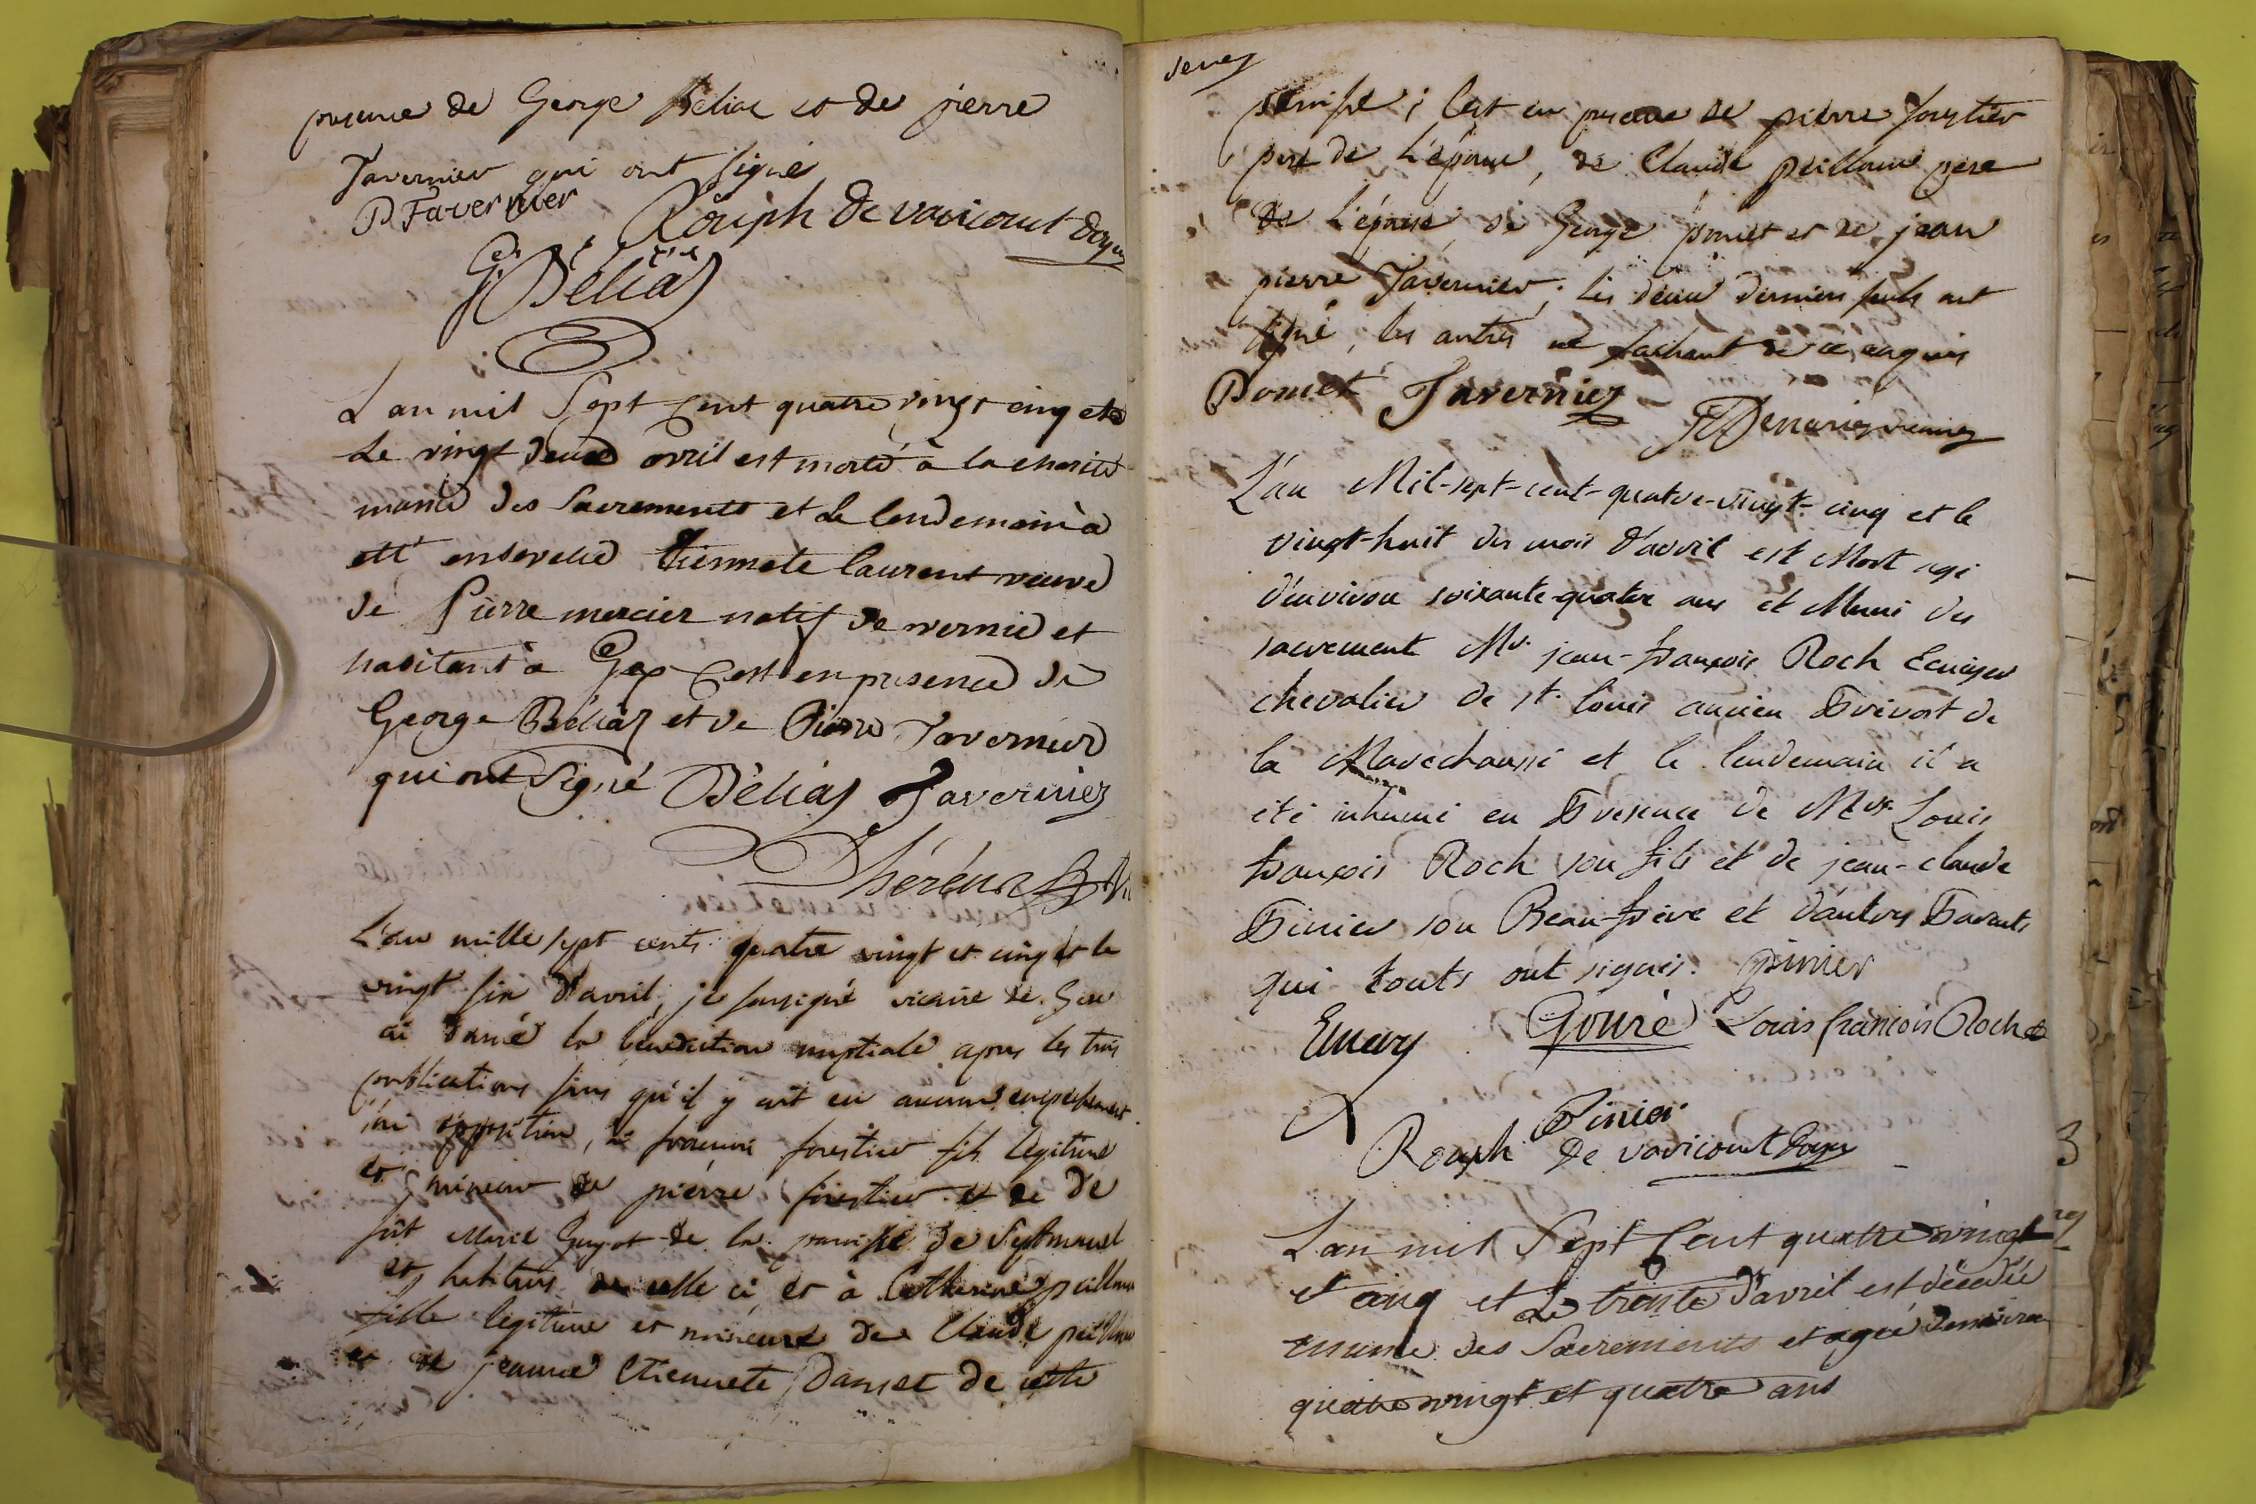 presence de George Béliaz et de pierre
Tavernier qui ont signé
P Tavernier
Rouph de varicourt doyen
G. Béliaz
L'an mil Sept Cent quatre vingt cinq et
Le vingt deux avril est morte à la charité
munie des Sacrements et Le lendemain a
etté ensevelie Etiennete Laurent veuve
de Pierre mercier natif de vernie et
habitant à Gex C'est en presence de
George Béliaz et de Pierre Tavernier
qui ont Signé Béliaz Tavernier
L'an mille sept cents quatre vingt et cinq et le
vingt six d'avril, je soussigné vicaire de Gex
ai donné la bénédiction nuptiale apres les trois
publications sans qu'il y ait eu aucuns empechement
ni opposition, à françois forestier fils legitime
et mineur de pierre forestier et de De
fût Marie Guyot de la paroisse de
et habitans de celle ci et à Catherine
fille legitime et mineure de Claude
et de jeanne Etiennete Danset de cette
paroisse ; C'est en presence de pierre forestier
pere de l'époux, de Claude peilloux pere
de l'épouse, de George poncet et de jean
pierre Tavernier ; les deux derniers seuls ont
signé, les autres ne sachant de ce enquis
Poncet Tavernier
L'an Mil-sept-cent-quatre-vingt-cinq et le
vingt-huit du mois d'avril est Mort agé
d'environ soixante-quatre ans et Muni des
sacrement Mr. jean-françois Roch Ecuyer
chevalier de st. louis ancien Prevost de
la Marechaussé et le lendemain il a
été inhumé en Presence de Mr Louis
françois Roch son fils et de jean-claude
Pinier son Beau-frère et d'autres Parents
qui touts ont signés. pinier
Emery Gouré Louis françois Roch
Pinier
Rouph de varicourt Doyen
L'an mil Sept Cent quatre vingt
et cinq et Le trente d'avril est décédée
munie des Sacrements et agée d'environ
quatre vingt et quatre ans